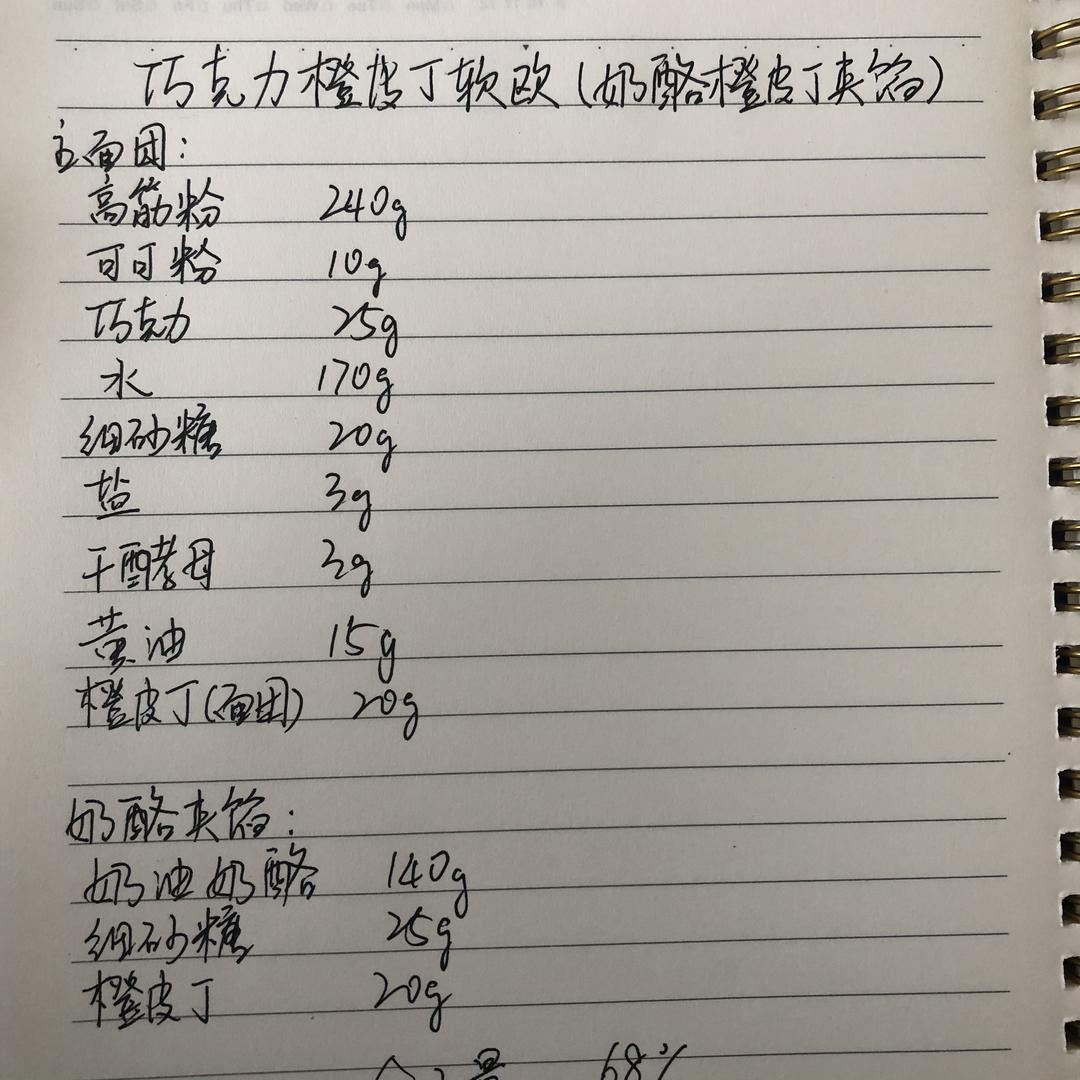 巧克力橙皮丁软欧(奶酪橙皮丁夹馅)
主面团:
高筋粉 240g
可可粉 10g
巧克力 25g
水 170g
细砂糖 20g
盐 3g
干酵母 3g
黄油 15g
橙皮丁(面团) 20g
奶酪夹馅:
奶油奶酪 140g
细砂糖 25g
橙皮丁 20g
68%